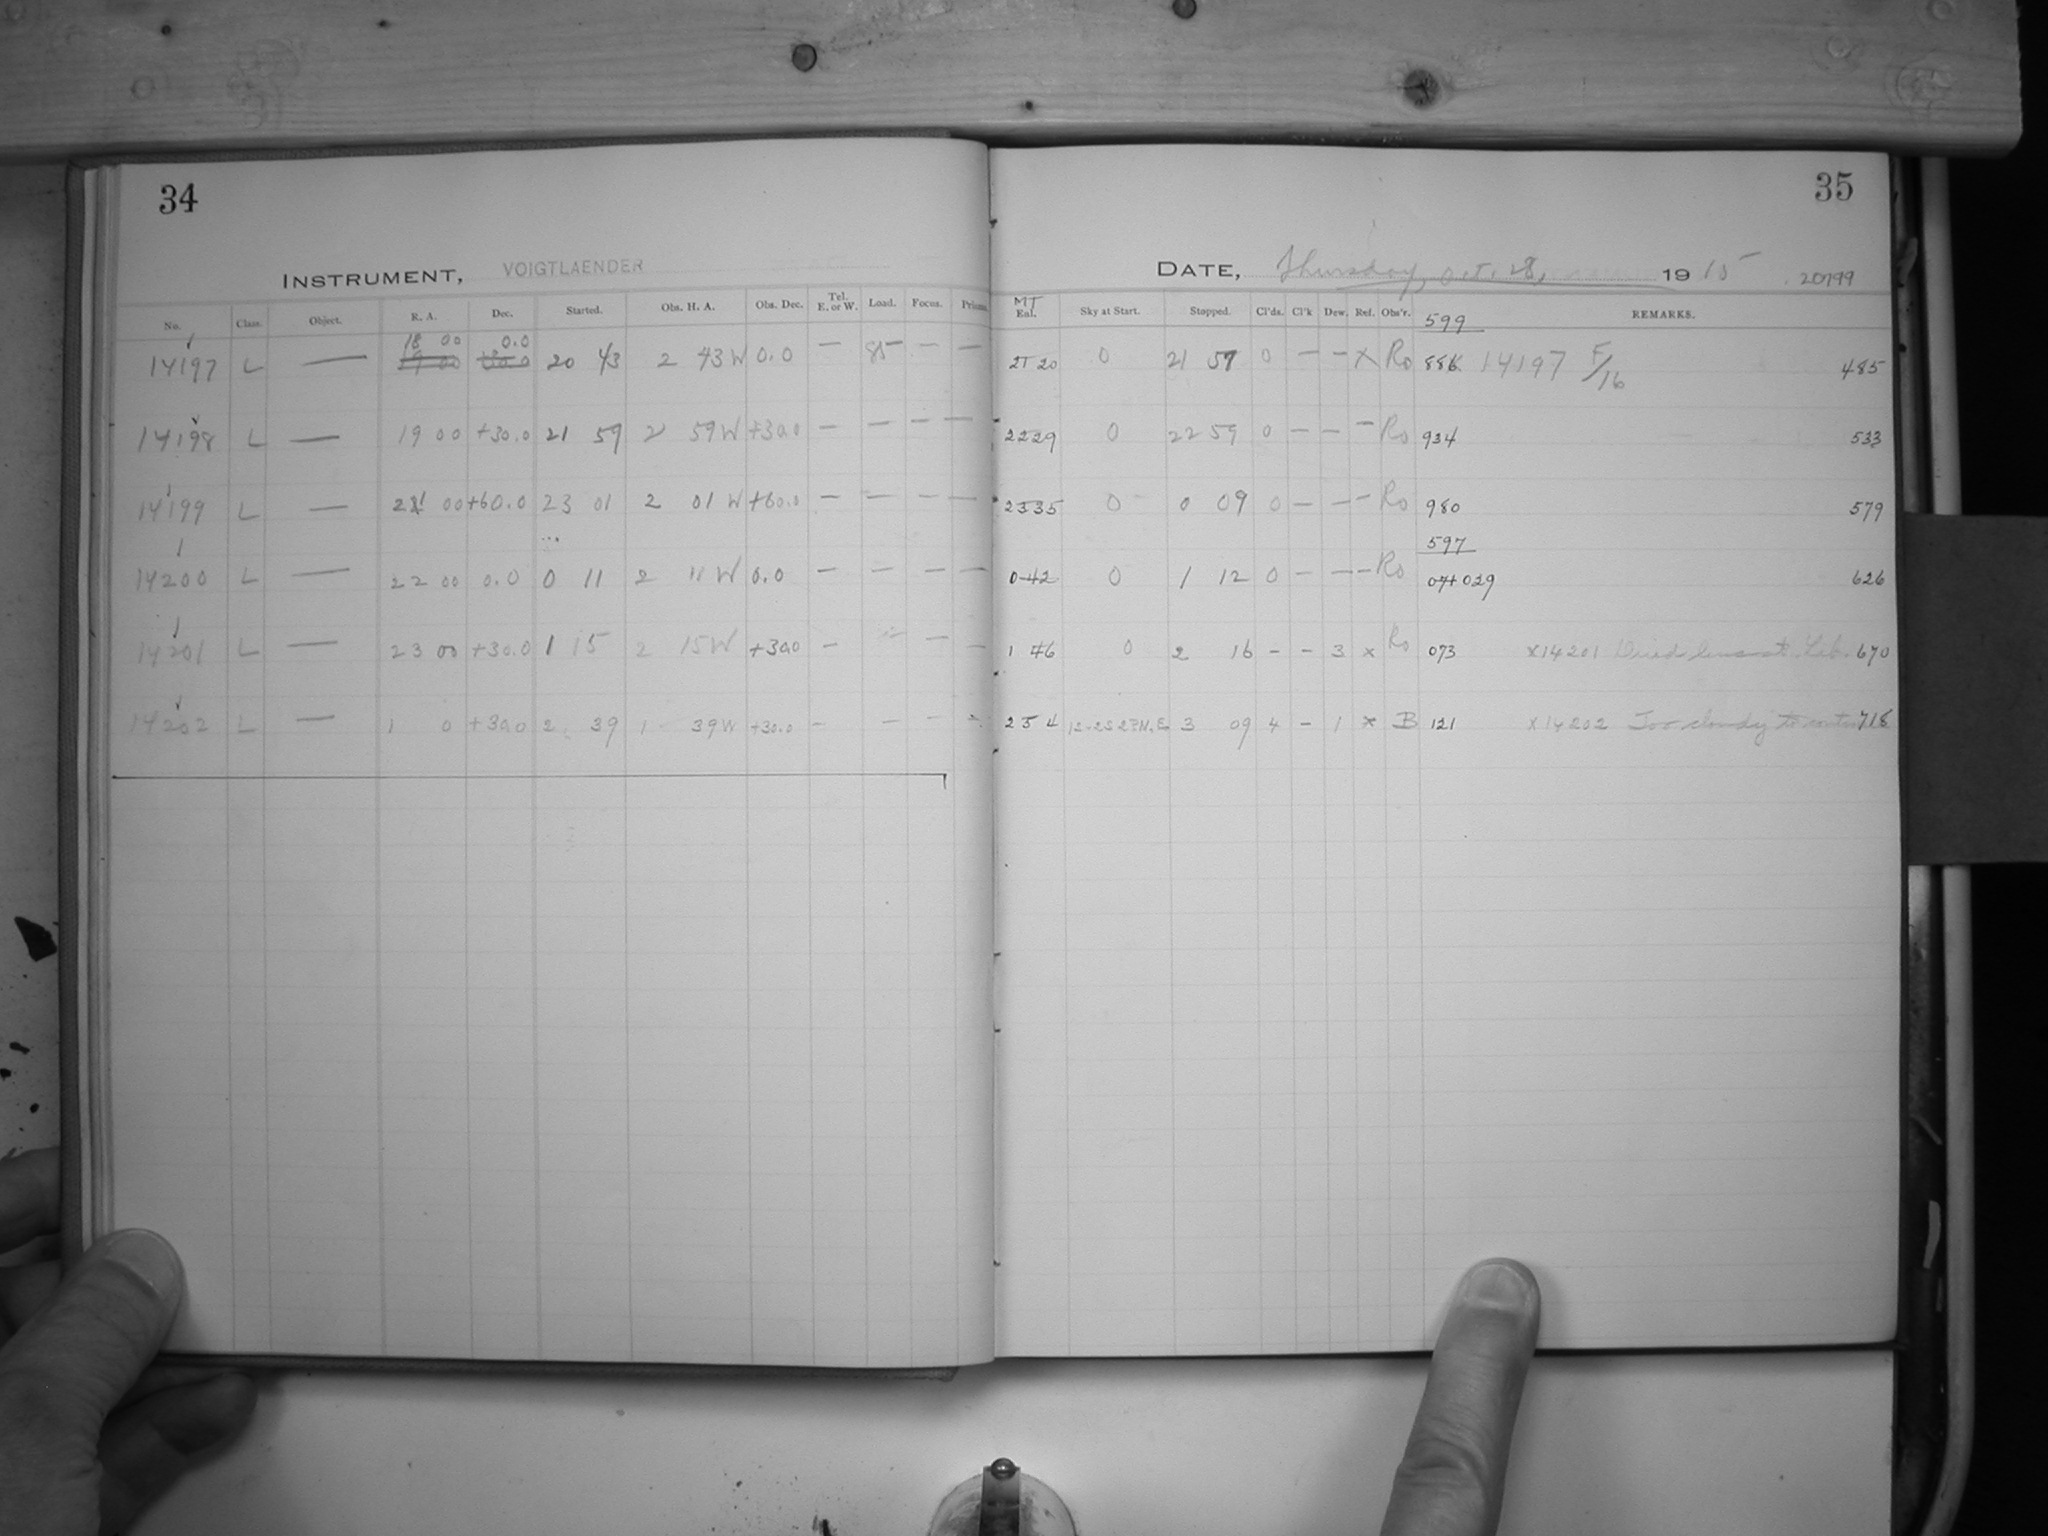 34
INSTRUMENT, VOIGTLAENDER
No. Class. Object. R. A. Dec. Started. Obs. H. A. Obs. Dec. Tel. E. or W. Load. Focus. Prism.
18 00 0.0
14197 L — 19 00 +30.0 20 43 2 43 W 0.0 — 85 — —
14198 L — 19 00 +30.0 21 59 2 59 W +30.0 — — — —
14199 L — 21 00 +60.0 23 01 2 01 W +60.0 — — — —
14200 L — 22 00 0.0 0 11 2 11 W 0.0 — — — —
14201 L — 23 00 +30.0 1 15 2 15 W +30.0 — — — —
14202 L — 1 0 +30.0 2 39 1 39 W +30.0 — — — —
35
DATE, Thursday, Oct. 28, 1915 20799
MT
Eal. Sky at Start. Stopped. Cl'ds. Cl'k Dew. Ref. Obs'r. REMARKS.
599
21 20 0 21 57 0 — — x Ro 886 14197 F/16 485
22 29 0 22 59 0 — — — Ro 934 533
23 35 0 0 09 0 — — — Ro 980 579
597
0 42 0 1 12 0 — — — Ro 029 626
1 46 0 2 16 — — 3 x Ro 073 x14201 Dried lens at 670
2 54 3 09 4 — 1 x B 121 x14202 Too cloudy to 718